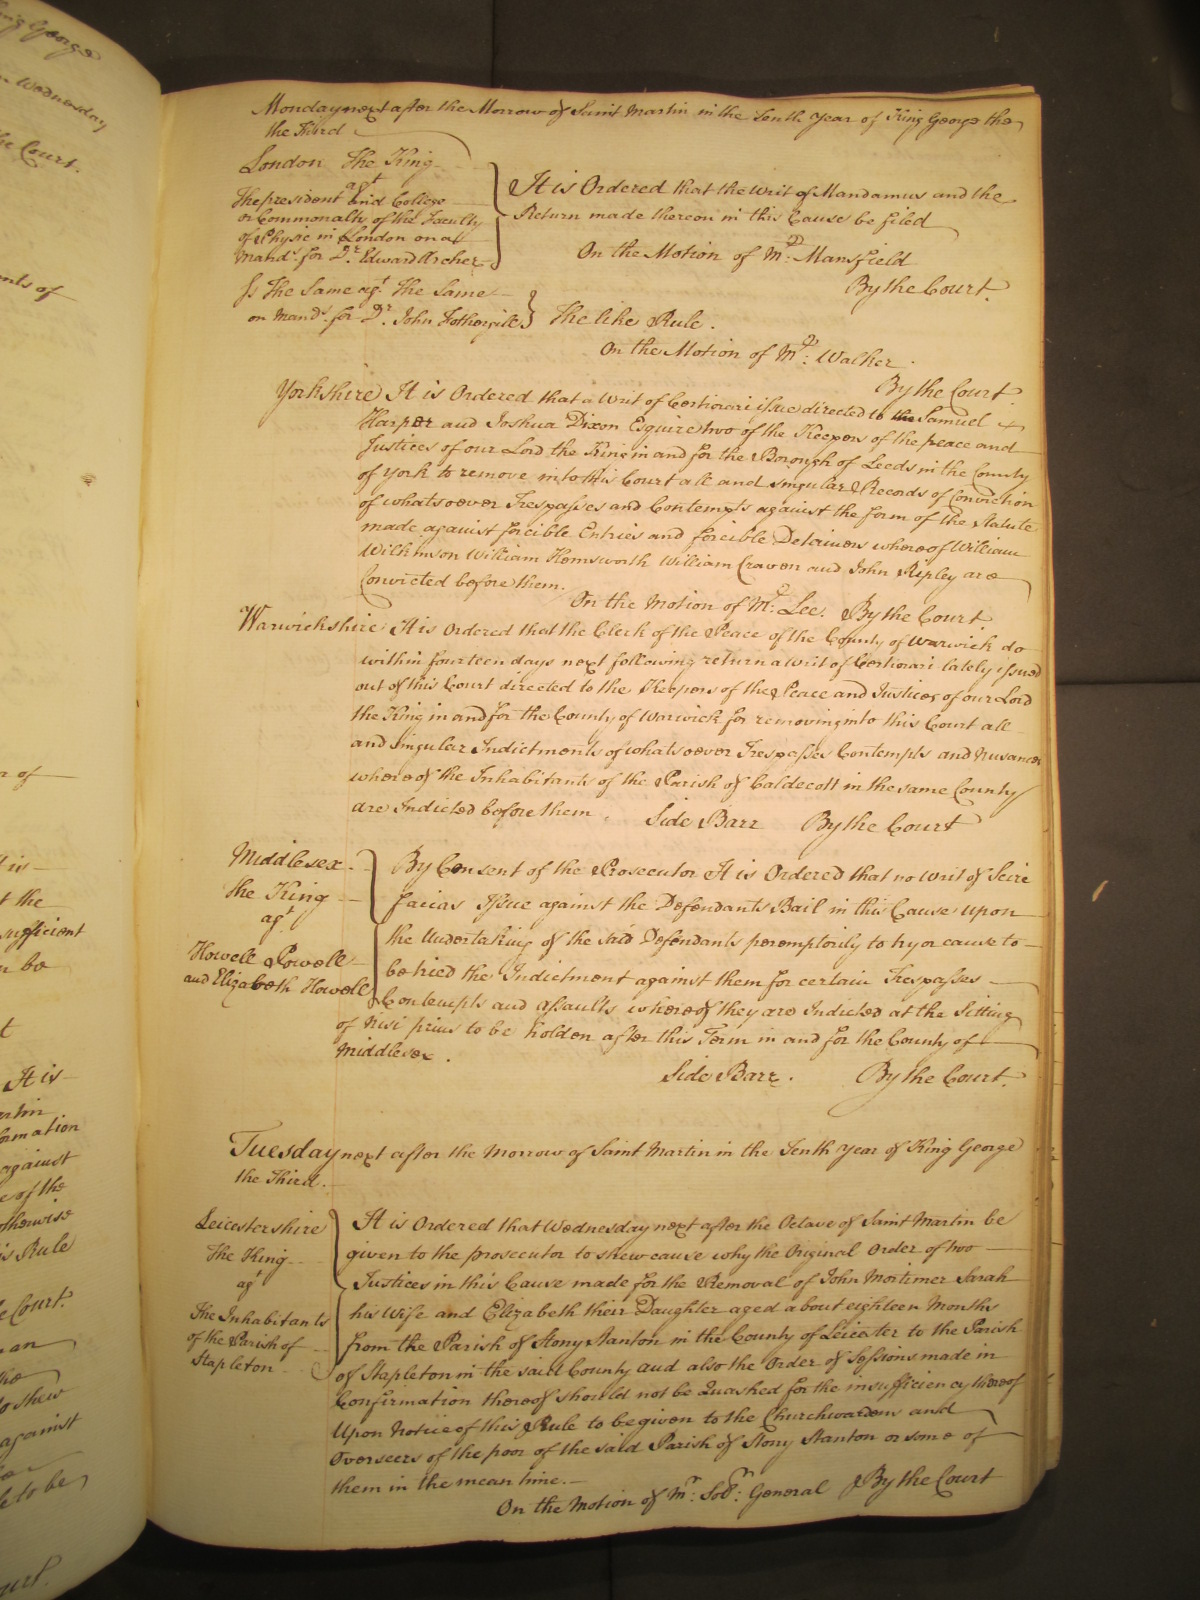 Monday next after the Morrow of Saint Martin in the Tenth Year of King George the
the Third
London The King
agt
The president and College
or Commonalty of the Faculty
of Physic in London on a
Mands. for Dr. Edward Archer
It is Ordered that the Writ of Mandamus and the
Return made thereon in this Cause be filed
On the Motion of Mr. Mansfield
By the Court.
The Same agt. the Same
on Mands. for Dr. John Fothergile
The like Rule.
On the Motion of Mr. Walker.
By the Court
Yorkshire It is Ordered that a Writ of Certiorari issue directed to the Samuel
Harper and Joshua Dixon Esquire two of the Keepers of the peace and
Justices of our Lord the King in and for the Borough of Leeds in the County
of York to remove into this Court all and singular Records of Conviction
of whatsoever Trespasses and Contempts against the form of the Statute
made against forcible Entries and forcible Detainers whereof William
Wilkinson William Hemsworth William Craven and John Ripley are
Convicted before them.
On the Motion of Mr. Lee. By the Court
Warwickshire It is Ordered that the Clerk of the Peace of the County of Warwick do
within fourteen days next following return a Writ of Certiorari lately issued
out of this Court directed to the Keepers of the Peace and Justices of our Lord
the King in and for the County of Warwick for removing into this Court all
and singular Indictments of whatsoever Trespasses Contempts and Nusances
whereof the Inhabitants of the Parish of Caldecott in the same County
are Indicted before them. Side Barr By the Court
Middlesex.
the King
agt
Howell Powell
and Elizabeth Howell
By Consent of the Prosecutor It is Ordered that no Writ of Scire
facias Issue against the Defendants Bail in this Cause upon
the Undertaking of the said Defendants peremptorily to try or cause to
be tried the Indictment against them for certain Trespasses
Contempts and assaults whereof they are Indicted at the Sitting
of Nisi prius to be holden after this Term in and for the County of
Middlesex.
Side Barr. By the Court.
Tuesday next after the Morrow of Saint Martin in the Tenth Year of King George
the Third.
Leicestershire
The King
agt
The Inhabitants
of the Parish of
Stapleton
It is Ordered that Wednesday next after the Octave of Saint Martin be
given to the prosecutor to shew cause why the Original Order of two
Justices in this Cause made for the Removal of John Mortimer Sarah
his Wife and Elizabeth their Daughter aged about eighteen Months
from the Parish of Stony Stanton in the County of Leicester to the Parish
of Stapleton in the said County and also the Order of Sessions made in
Confirmation thereof should not be Quashed for the insufficiency thereof
Upon Notice of this Rule to be given to the Churchwardens and
Overseers of the poor of the said Parish of Stony Stanton or some of
them in the mean time.
On the Motion of Mr. Solr. General By the Court